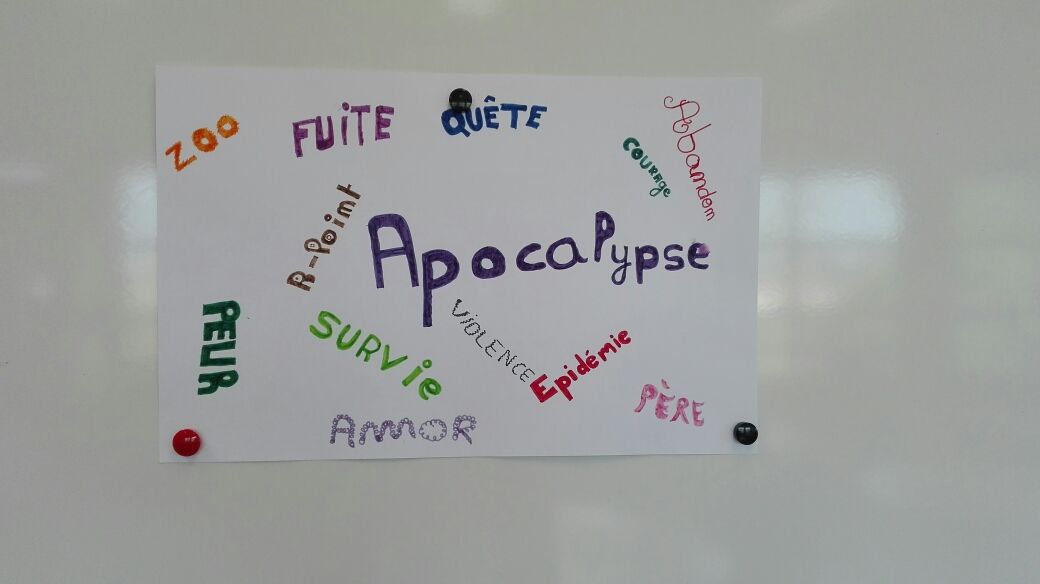 ZOO
FUITE
QUÊTE
Abbamdom
courage
R-Point
Apocalypse
PEUR
SURVIE
VIOLENCE
Epidémie
PÈRE
AMMOR